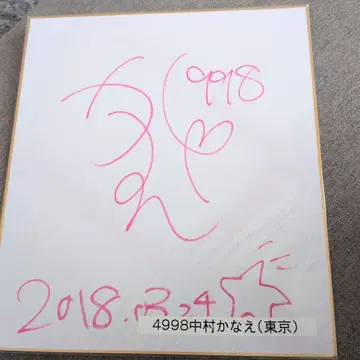 4998
かなえ
2018.3.24
4998中村かなえ(東京)